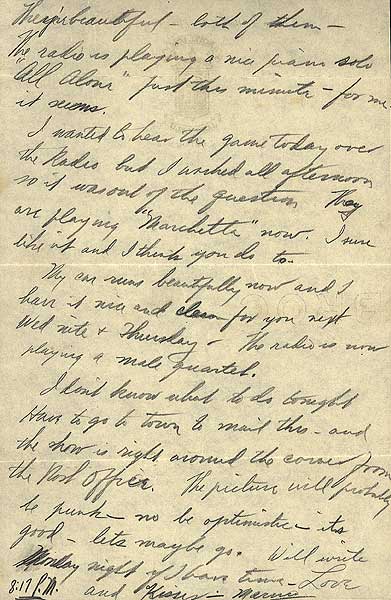 They're beautiful - both of them -
The radio is playing a nice piano solo
"All Alone" just this minute - for me
it seems.
I wanted to hear the game today over
the Radio but I worked all afternoon
so it was out of the question They
are playing "Marchetta" now. I sure
like it and I think you do to -
My car runs beautifully now and I
have it nice and clean for you next
Wed nite & Thursday - The radio is now
playing a male quartet.
I don't know what to do tonight
Have to go to town to mail this - and
the show is right around the corner from
the Post Office. The picture will probably
be punk - no be optimistic - its
good - lets maybe go. Will write
Monday night if I have time - Love
8:17 P.M. and Kisses -